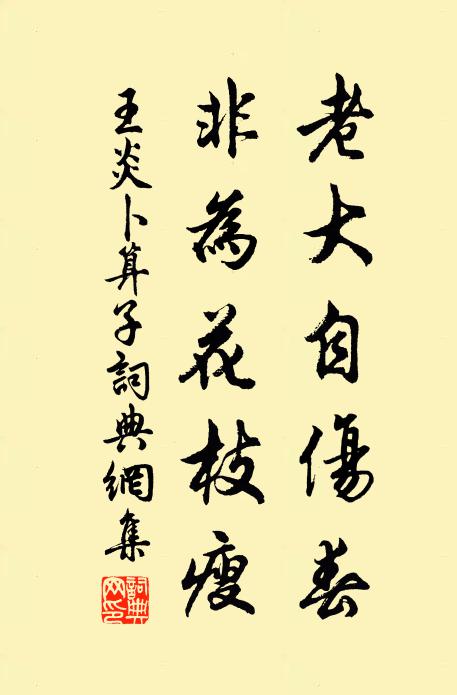 老大自傷春
非為花枝瘦
王炎卜算子詞典網集
詞典網印